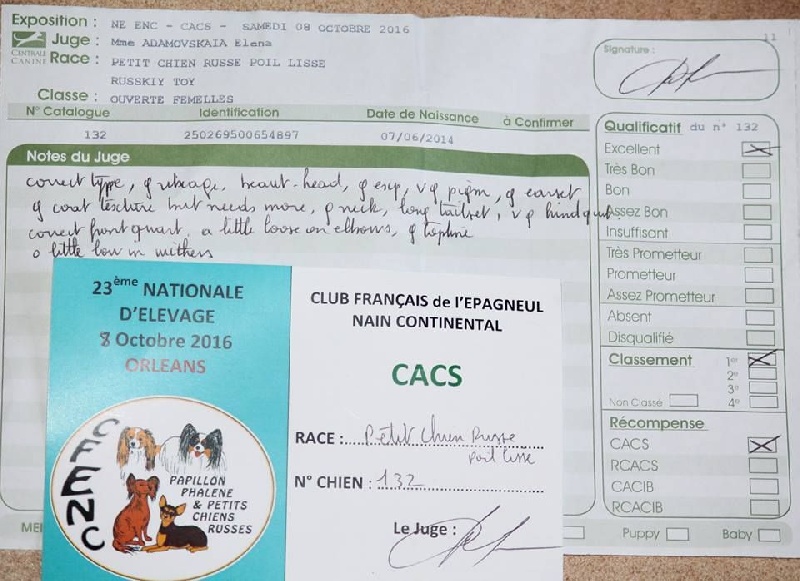 Exposition : NE ENC - CACS - SAMEDI 08 OCTOBRE 2016
Juge : Mme ADAMOVSKAIA Elena
CENTRALE CANINE
Race : PETIT CHIEN RUSSE POIL LISSE
RUSSKIY TOY
Classe : OUVERTE FEMELLES
N° Catalogue Identification Date de Naissance à Confirmer
132 250269500654897 07/06/2014
Notes du Juge
correct type, g ribcage, beaut. head, g exp, vg pigm, g earset
g coat texture but needs more, g neck, long tailset, vg hind quart.
correct front quart, a little loose on elbows, g topline
a little low in withers
11
Signature :
Qualificatif du n° 132
Excellent
Très Bon
Bon
Assez Bon
Insuffisant
Très Prometteur
Prometteur
Assez Prometteur
Absent
Disqualifié
Classement 1er
2e
3e
Non Classé 4e
Récompense
CACS
RCACS
CACIB
RCACIB
Puppy Baby
23ème NATIONALE
D'ELEVAGE
8 Octobre 2016
ORLEANS
CFENC
PAPILLON
PHALENE
& PETITS
CHIENS
RUSSES
CLUB FRANÇAIS de l'EPAGNEUL
NAIN CONTINENTAL
CACS
RACE : Petit Chien Russe
poil lisse
N° CHIEN : 132
Le Juge :